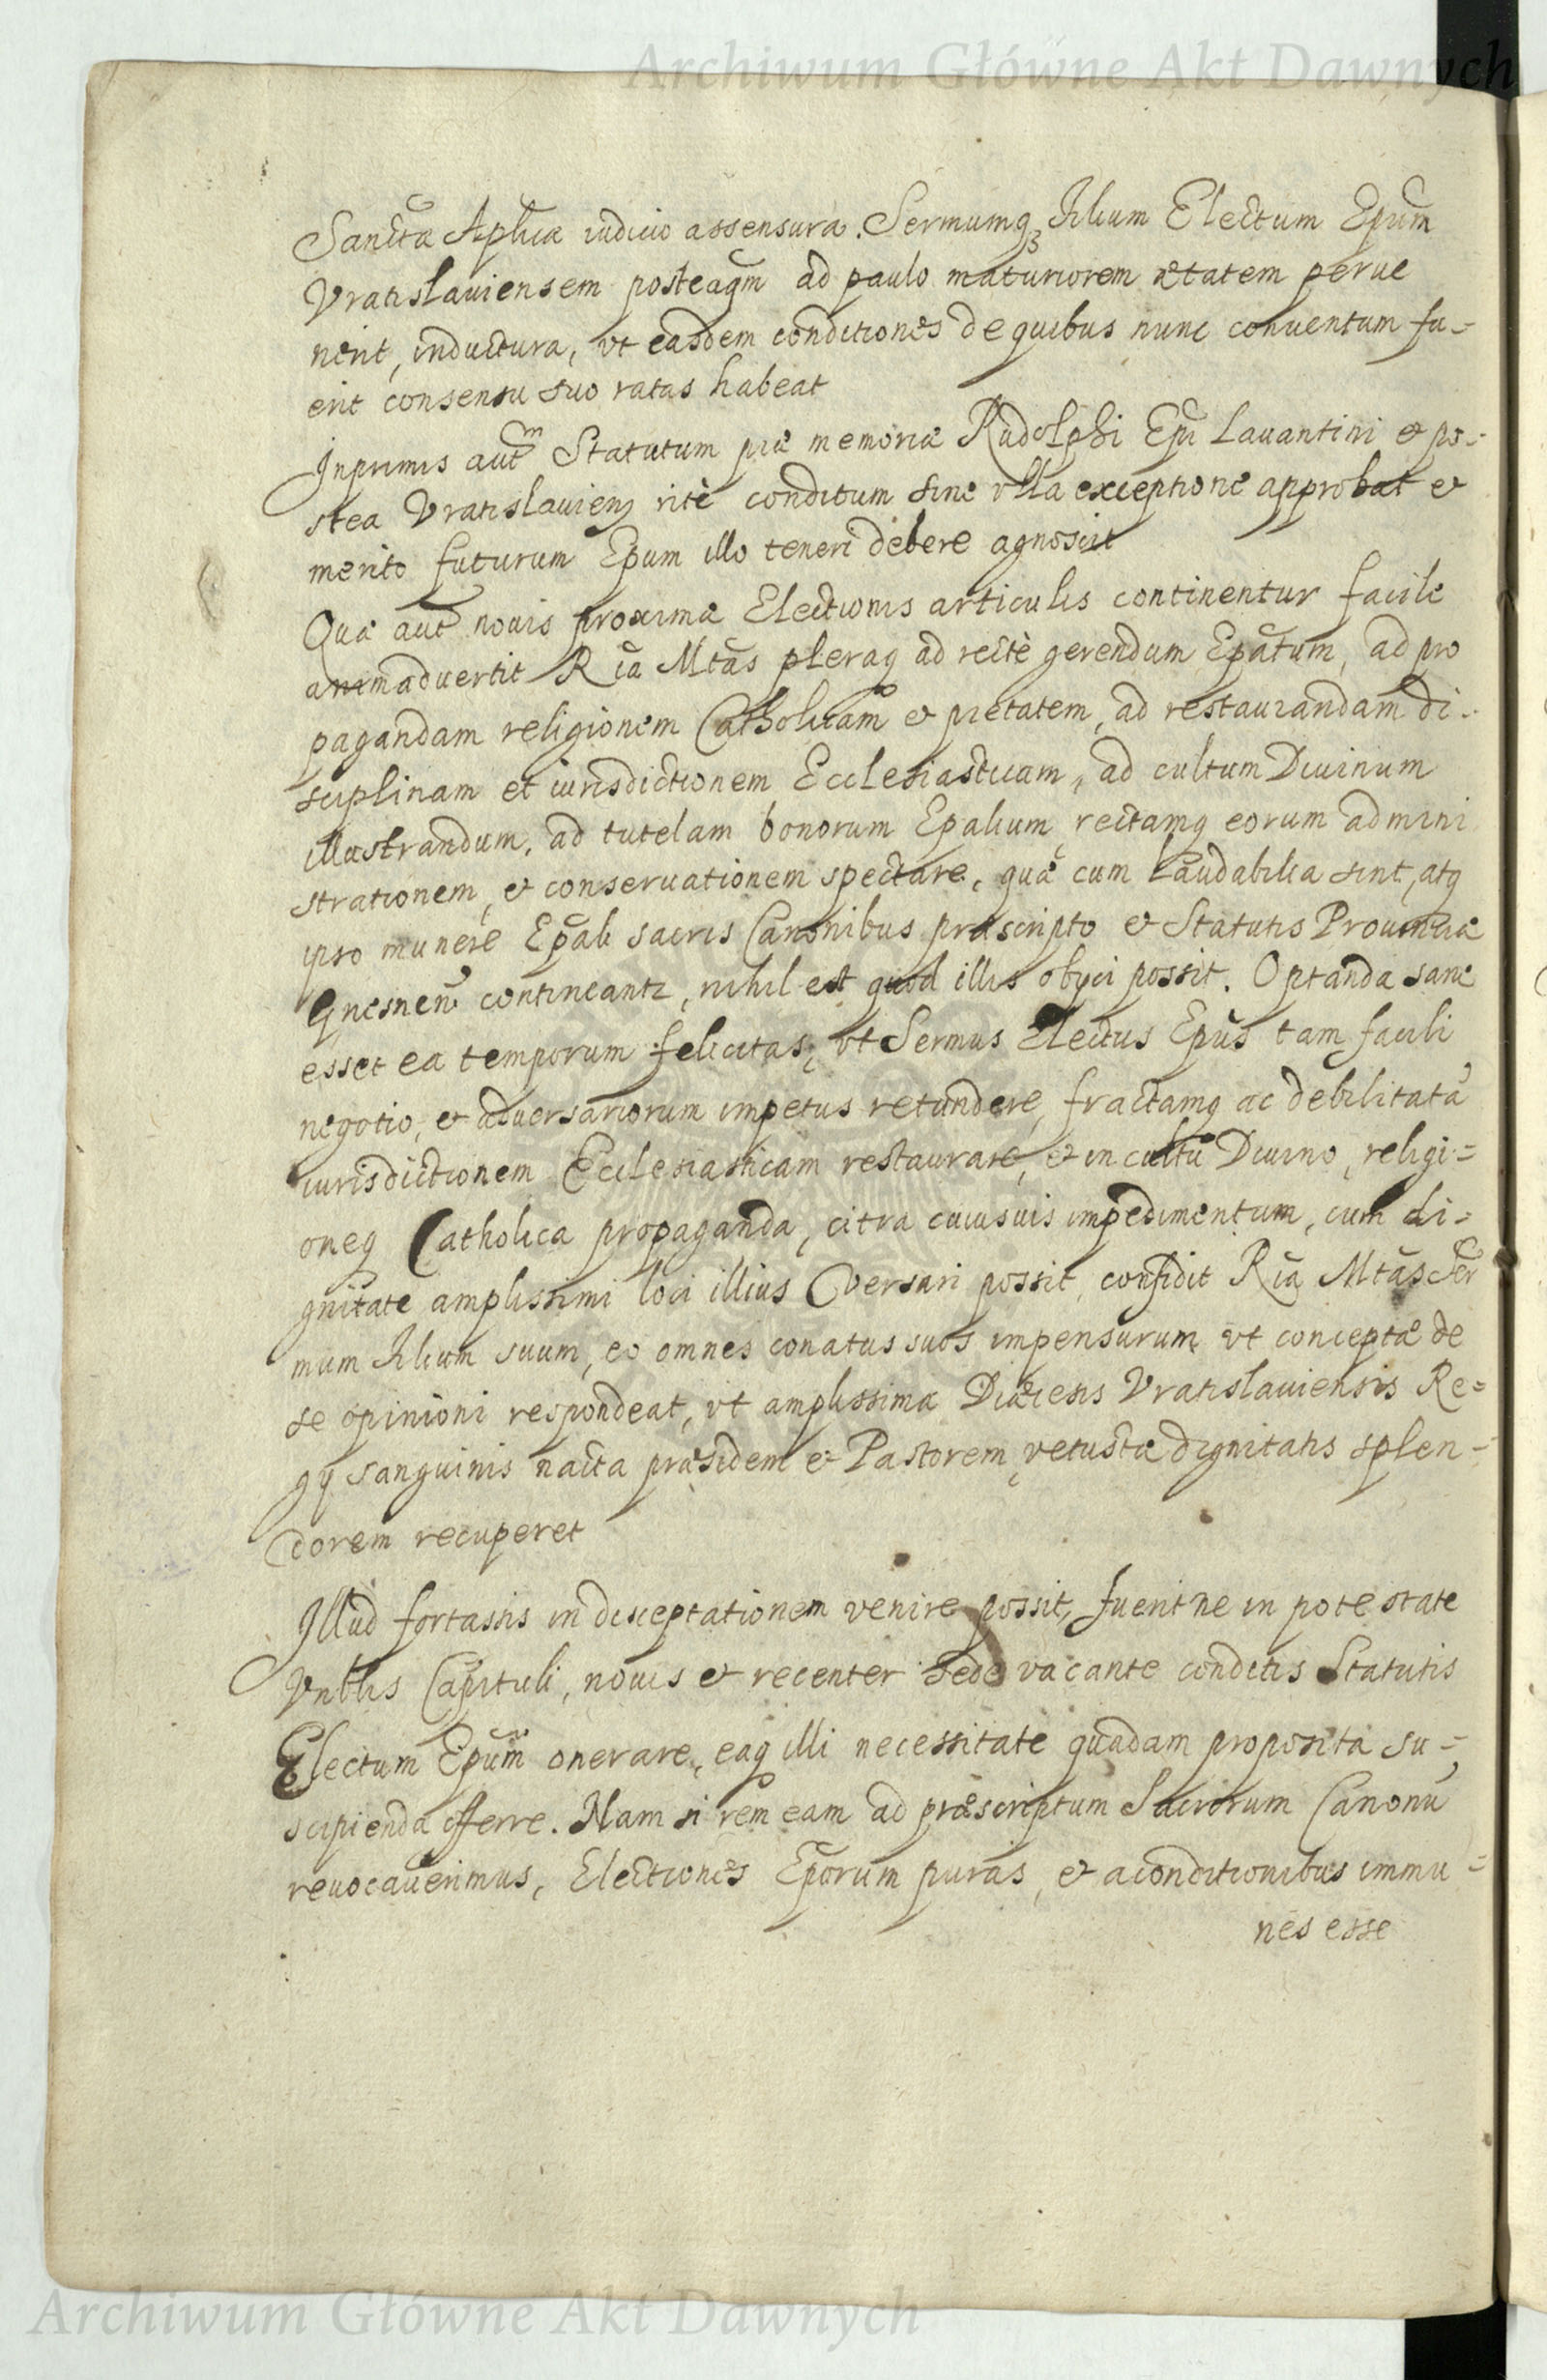 Archiwum Główne Akt Dawnych
Sanctæ Aplicæ iudicio assensura. Sermumq3 filium Electum Epum
Vratislauiensem posteaqm ad paulo maturiorem ætatem perue
nerit, inductura, vt easdem conditiones de quibus nunc conuentum fu-
erit consensu suo ratas habeat
Inprimis autm Statutum piæ memoriæ Rudolphi Epi Lauantini et po-
stea Vratislauien ritè conditum sine vlla exceptione approbat et
merito futurum Epum illo teneri debere agnoscit
Quæ aut nouis proximæ Electionis articulis continentur facile
animaduertit Ria Mtas pleraq ad rectè gerendum Epatum, ad pro
pagandam religionem Catholicam et pietatem, ad restaurandam di-
sciplinam et iurisdictionem Ecclesiasticam, ad cultum Diuinum
illustrandum, ad tutelam bonorum Epalium rectamq eorum admini
strationem, et conseruationem spectare, quæ cum laudabilia sint, atq
ipso munere Epali sacris Canonibus præscripto et Statutis Prouinciæ
Gnesnen contineantr, nihil est quod illis obijci possit. Optanda sane
esset ea temporum felicitas, vt Sermus Electus Epus tam facili
negotio, et aduersariorum impetus retundere, fractamq ac debilitatã
iurisdictionem Ecclesiasticam restaurare, et in cultu Diuino, religi=
oneq Catholica propaganda, citra cuiusuis impedimentum, cum di=
gnitate amplissimi loci illius versari possit, confidit Ria Mtas Ser
mum filium suum, eo omnes conatus suos impensurum vt conceptæ de
se opinioni respondeat, vt amplissima Diæcesis Vratislauiensis Re=
gij sanguinis nacta præsidem et Pastorem, vetustæ dignitatis splen-
dorem recuperet
Illud fortassis in disceptationem venire possit, fuerit ne in potestate
Vnblis Capituli, nouis et recenter sede vacante conditis Statutis
Electum Epum onerare, eaq illi necessitate quadam proposita su-
scipienda offerre. Nam si rem eam ad præscriptum Sacrorum Canonũ
reuocauerimus, Electiones Eporum puras, et a conditionibus immu=
nes esse
Archiwum Główne Akt Dawnych